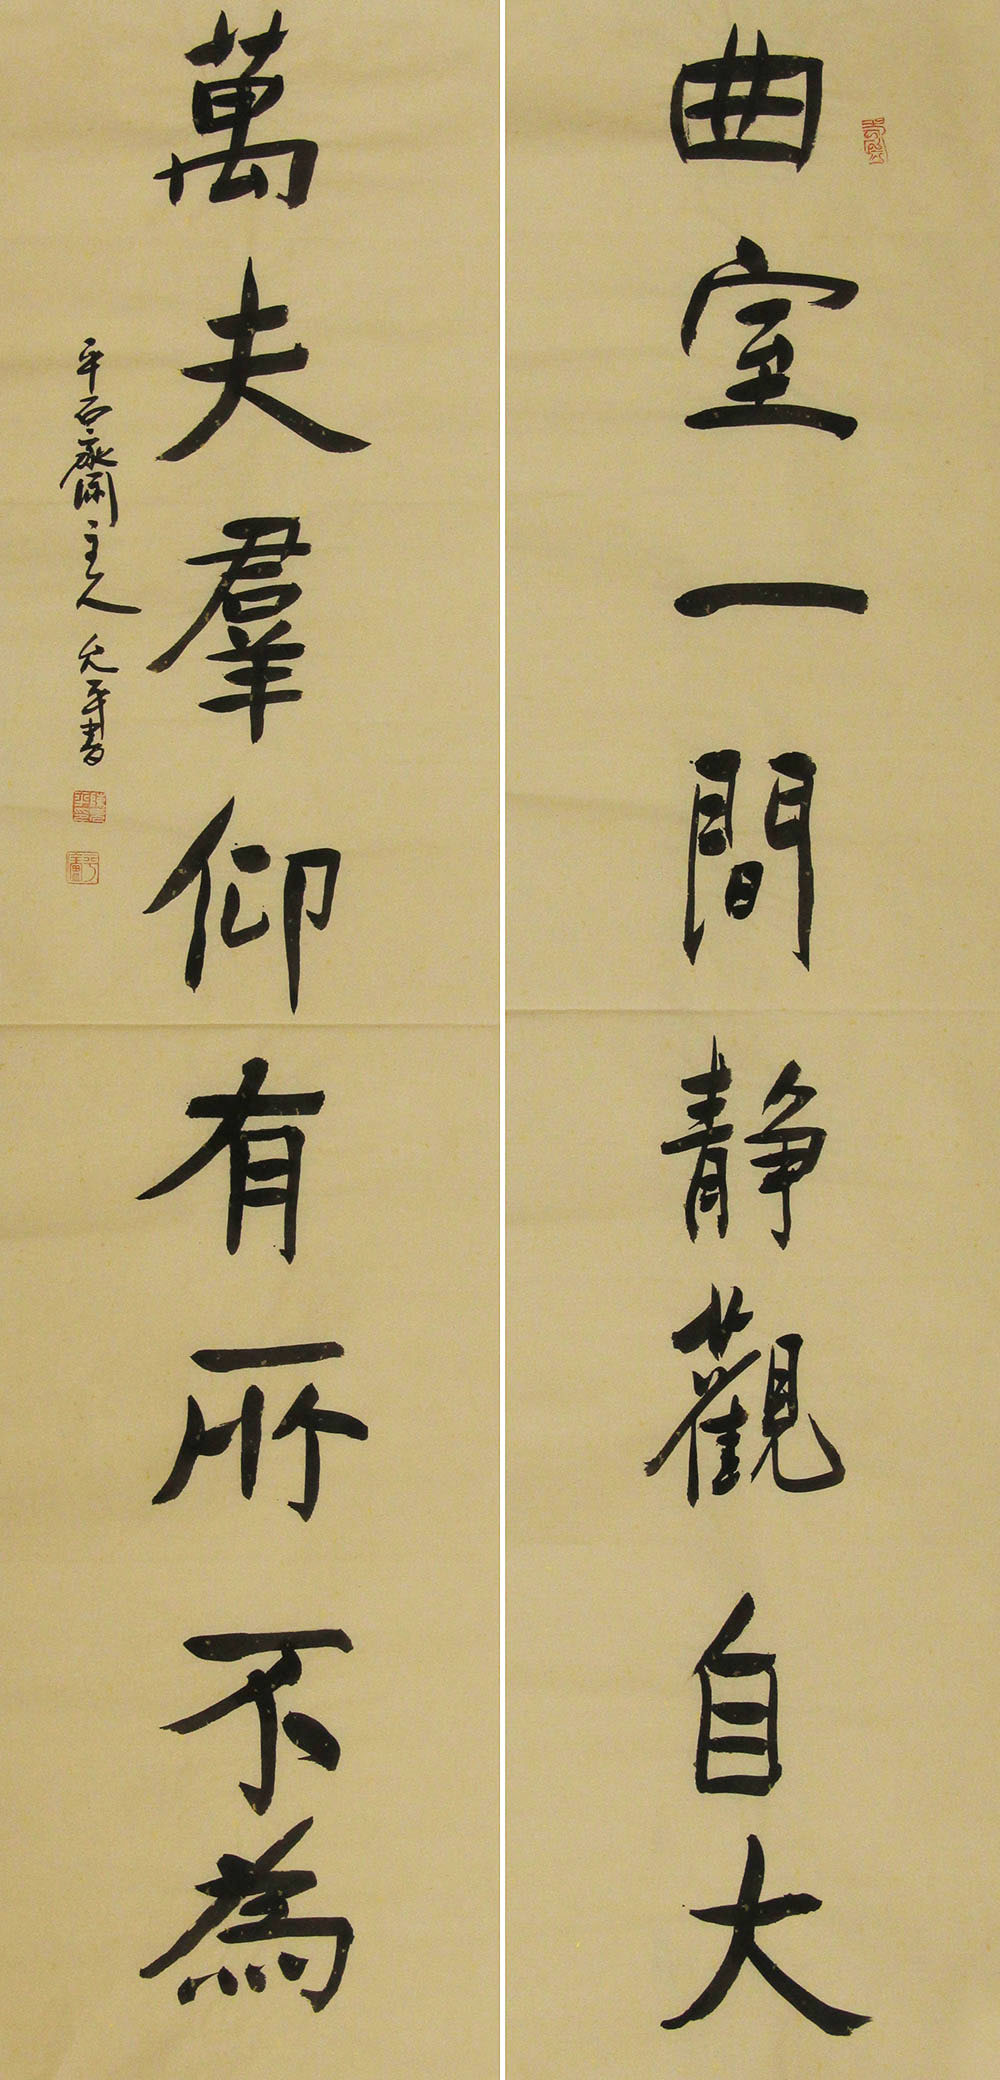 曲室一間靜觀自大
萬夫羣仰有所不為
平石
主人 允平書